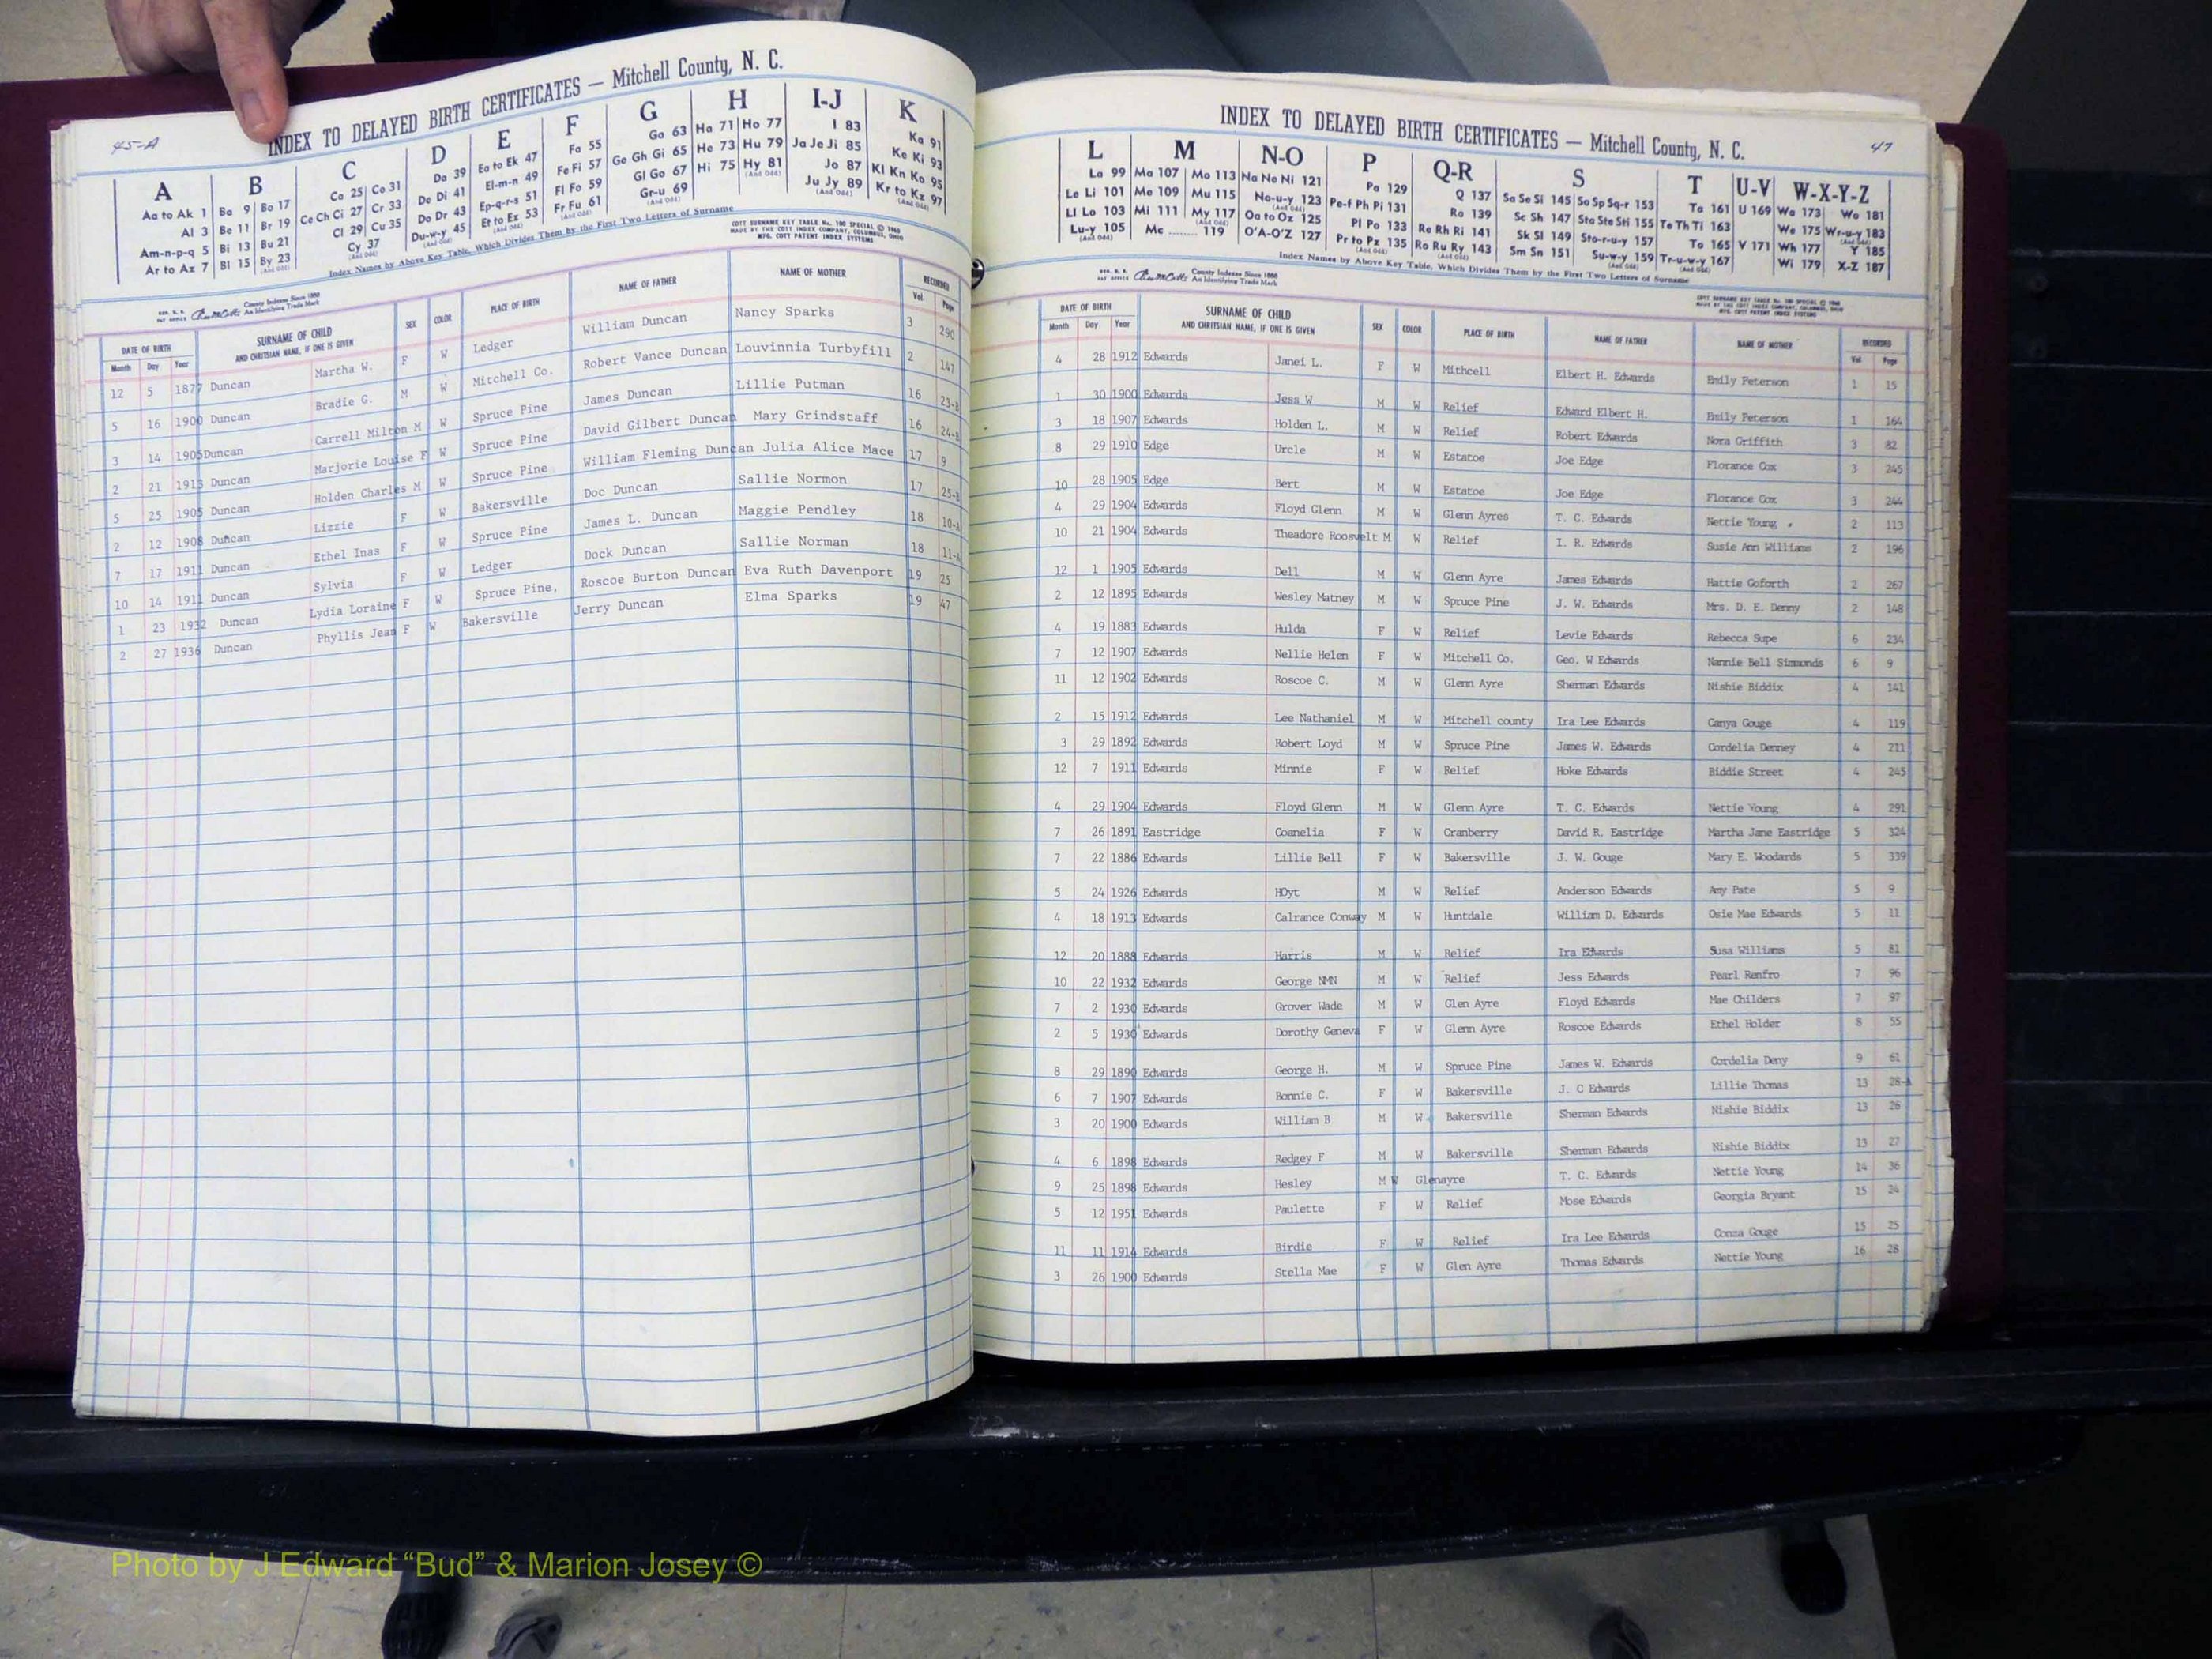 45-A
INDEX TO DELAYED BIRTH CERTIFICATES — Mitchell County, N. C.
A B C D E F G H I-J K
Aa to Ak 1 Ba 9 Bo 17 Ca 25 Co 31 Da 39 Ea to Ek 47 Fa 55 Ga 63 Ha 71 Ho 77 I 83 Ka 91
Al 3 Be 11 Br 19 Ce Ch Ci 27 Cr 33 De Di 41 El-m-n 49 Fe Fi 57 Ge Gh Gi 65 He 73 Hu 79 Ja Je Ji 85 Ke Ki 93
Am-n-p-q 5 Bi 13 Bu 21 Cl 29 Cu 35 Do Dr 43 Ep-q-r-s 51 Fl Fo 59 Gl Go 67 Hi 75 Hy 81 Jo 87 Kl Kn Ko 95
Ar to Az 7 Bl 15 By 23 Cy 37 Du-w-y 45 Et to Ez 53 Fr Fu 61 Gr-u 69 Ju Jy 89 Kr to Kz 97
Index Names by Above Key Table, Which Divides Them by the First Two Letters of Surname
COTT SURNAME KEY TABLE No. 100 SPECIAL © 1966
MADE BY THE COTT INDEX COMPANY, COLUMBUS, OHIO
MFG. COTT PATENT INDEX SYSTEMS
County Indexes Since 1888
An Identifying Trade Mark
DATE OF BIRTH SURNAME OF CHILD AND CHRITSIAN NAME, IF ONE IS GIVEN SEX COLOR PLACE OF BIRTH NAME OF FATHER NAME OF MOTHER RECORDED
Month Day Year Vol. Page
12 5 1877 Duncan Martha W. F W Ledger William Duncan Nancy Sparks 3 290
5 16 1900 Duncan Bradie G. M W Mitchell Co. Robert Vance Duncan Louvinnia Turbyfill 2 147
3 14 1905 Duncan Carrell Milton M W Spruce Pine James Duncan Lillie Putman 16 23-B
2 21 1913 Duncan Marjorie Louise F W Spruce Pine David Gilbert Duncan Mary Grindstaff 16 24-B
5 25 1905 Duncan Holden Charles M W Spruce Pine William Fleming Duncan Julia Alice Mace 17 9
2 12 1908 Duncan Lizzie F W Bakersville Doc Duncan Sallie Normon 17 25-B
7 17 1911 Duncan Ethel Inas F W Spruce Pine James L. Duncan Maggie Pendley 18 10-A
10 14 1911 Duncan Sylvia F W Ledger Dock Duncan Sallie Norman 18 11-A
1 23 1932 Duncan Lydia Loraine F W Spruce Pine, Roscoe Burton Duncan Eva Ruth Davenport 19 25
2 27 1936 Duncan Phyllis Jean F W Bakersville Jerry Duncan Elma Sparks 19 47
INDEX TO DELAYED BIRTH CERTIFICATES — Mitchell County, N. C.
47
L M N-O P Q-R S T U-V W-X-Y-Z
La 99 Ma 107 Mo 113 Na Ne Ni 121 Pa 129 Q 137 Sa Se Si 145 So Sp Sq-r 153 Ta 161 U 169 Wa 173 Wo 181
Le Li 101 Me 109 Mu 115 No-u-y 123 Pe-f Ph Pi 131 Ra 139 Sc Sh 147 Sta Ste Sti 155 Te Th Ti 163 We 175 Wr-u-y 183
Ll Lo 103 Mi 111 My 117 Oa to Oz 125 Pl Po 133 Re Rh Ri 141 Sk Sl 149 Sto-r-u-y 157 To 165 V 171 Wh 177 Y 185
Lu-y 105 Mc ........ 119 O'A-O'Z 127 Pr to Pz 135 Ro Ru Ry 143 Sm Sn 151 Su-w-y 159 Tr-u-w-y 167 Wi 179 X-Z 187
Index Names by Above Key Table, Which Divides Them by the First Two Letters of Surname
COTT SURNAME KEY TABLE No. 100 SPECIAL © 1966
MADE BY THE COTT INDEX COMPANY, COLUMBUS, OHIO
MFG. COTT PATENT INDEX SYSTEMS
County Indexes Since 1888
An Identifying Trade Mark
DATE OF BIRTH SURNAME OF CHILD AND CHRITSIAN NAME, IF ONE IS GIVEN SEX COLOR PLACE OF BIRTH NAME OF FATHER NAME OF MOTHER RECORDED
Month Day Year Vol. Page
4 28 1912 Edwards Janei L. F W Mithcell Elbert H. Edwards Emily Peterson 1 15
1 30 1900 Edwards Jess W M W Relief Edward Elbert H. Emily Peterson 1 164
3 18 1907 Edwards Holden L. M W Relief Robert Edwards Nora Griffith 3 82
8 29 1910 Edge Urcle M W Estatoe Joe Edge Florance Cox 3 245
10 28 1905 Edge Bert M W Estatoe Joe Edge Florance Cox 3 244
4 29 1904 Edwards Floyd Glenn M W Glenn Ayres T. C. Edwards Nettie Young 2 113
10 21 1904 Edwards Theadore Roosvelt M W Relief I. R. Edwards Susie Ann Williams 2 196
12 1 1905 Edwards Dell M W Glenn Ayre James Edwards Hattie Goforth 2 267
2 12 1895 Edwards Wesley Matney M W Spruce Pine J. W. Edwards Mrs. D. E. Denny 2 148
4 19 1883 Edwards Hulda F W Relief Levie Edwards Rebecca Supe 6 234
7 12 1907 Edwards Nellie Helen F W Mitchell Co. Geo. W Edwards Nannie Bell Simmonds 6 9
11 12 1902 Edwards Roscoe C. M W Glenn Ayre Sherman Edwards Nishie Biddix 4 141
2 15 1912 Edwards Lee Nathaniel M W Mitchell county Ira Lee Edwards Canya Gouge 4 119
3 29 1892 Edwards Robert Loyd M W Spruce Pine James W. Edwards Cordelia Denney 4 211
12 7 1911 Edwards Minnie F W Relief Hoke Edwards Biddie Street 4 245
4 29 1904 Edwards Floyd Glenn M W Glenn Ayre T. C. Edwards Nettie Young 4 291
7 26 1891 Eastridge Coanelia F W Cranberry David R. Eastridge Martha Jane Eastridge 5 324
7 22 1886 Edwards Lillie Bell F W Bakersville J. W. Gouge Mary E. Woodards 5 339
5 24 1926 Edwards HOyt M W Relief Anderson Edwards Amy Pate 5 9
4 18 1913 Edwards Calrance Conway M W Huntdale William D. Edwards Osie Mae Edwards 5 11
12 20 1888 Edwards Harris M W Relief Ira Edwards Susa Williams 5 81
10 22 1932 Edwards George NMN M W Relief Jess Edwards Pearl Renfro 7 96
7 2 1930 Edwards Grover Wade M W Glen Ayre Floyd Edwards Mae Childers 7 97
2 5 1930 Edwards Dorothy Geneva F W Glenn Ayre Roscoe Edwards Ethel Holder 8 55
8 29 1890 Edwards George H. M W Spruce Pine James W. Edwards Cordelia Deny 9 61
6 7 1907 Edwards Bonnie C. F W Bakersville J. C Edwards Lillie Thomas 13 28-A
3 20 1900 Edwards William B M W Bakersville Sherman Edwards Nishie Biddix 13 26
4 6 1898 Edwards Redgey F M W Bakersville Sherman Edwards Nishie Biddix 13 27
9 25 1898 Edwards Hesley M W Glenayre T. C. Edwards Nettie Young 14 36
5 12 1951 Edwards Paulette F W Relief Mose Edwards Georgia Bryant 15 24
11 11 1914 Edwards Birdie F W Relief Ira Lee Edwards Conza Gouge 15 25
3 26 1900 Edwards Stella Mae F W Glen Ayre Thomas Edwards Nettie Young 16 28
Photo by J Edward “Bud” & Marion Josey ©